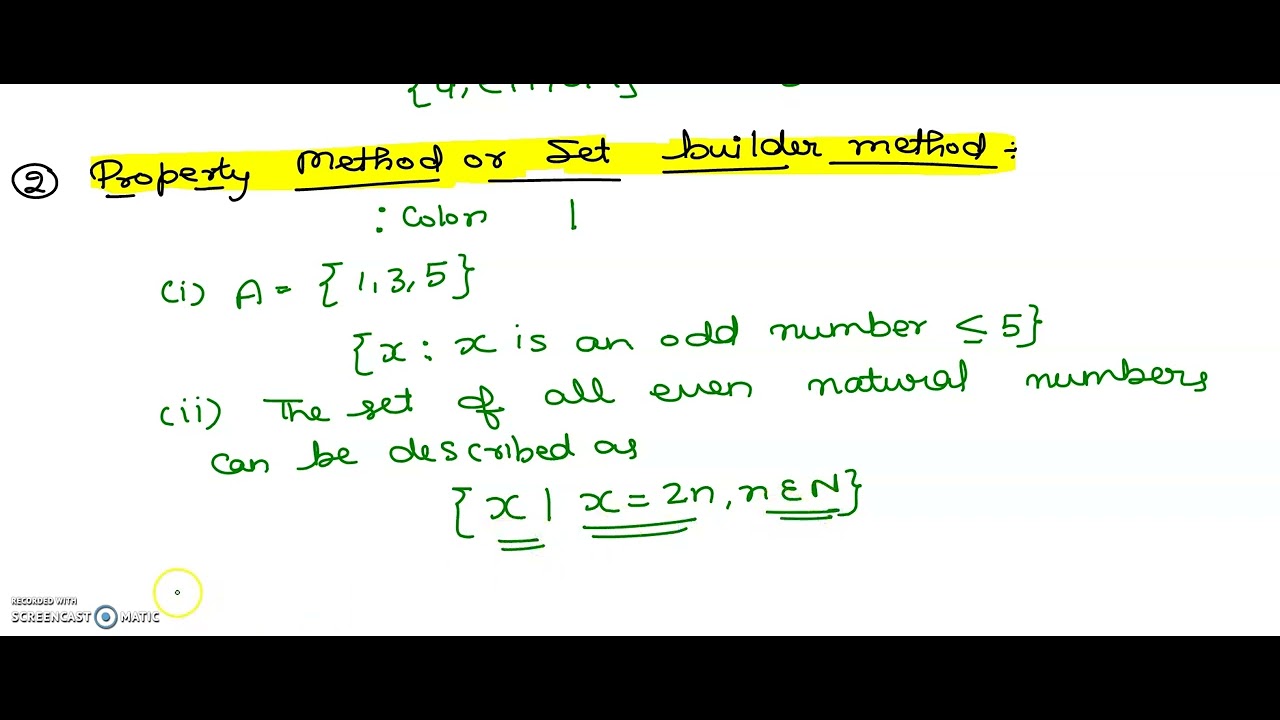 ② Property Method or Set builder method :
: Colon |
(i) A = {1, 3, 5}
{x : x is an odd number ≤ 5}
(ii) The set of all even natural numbers
can be described as
{x | x = 2n, n ∈ N}
RECORDED WITH
SCREENCAST MATIC